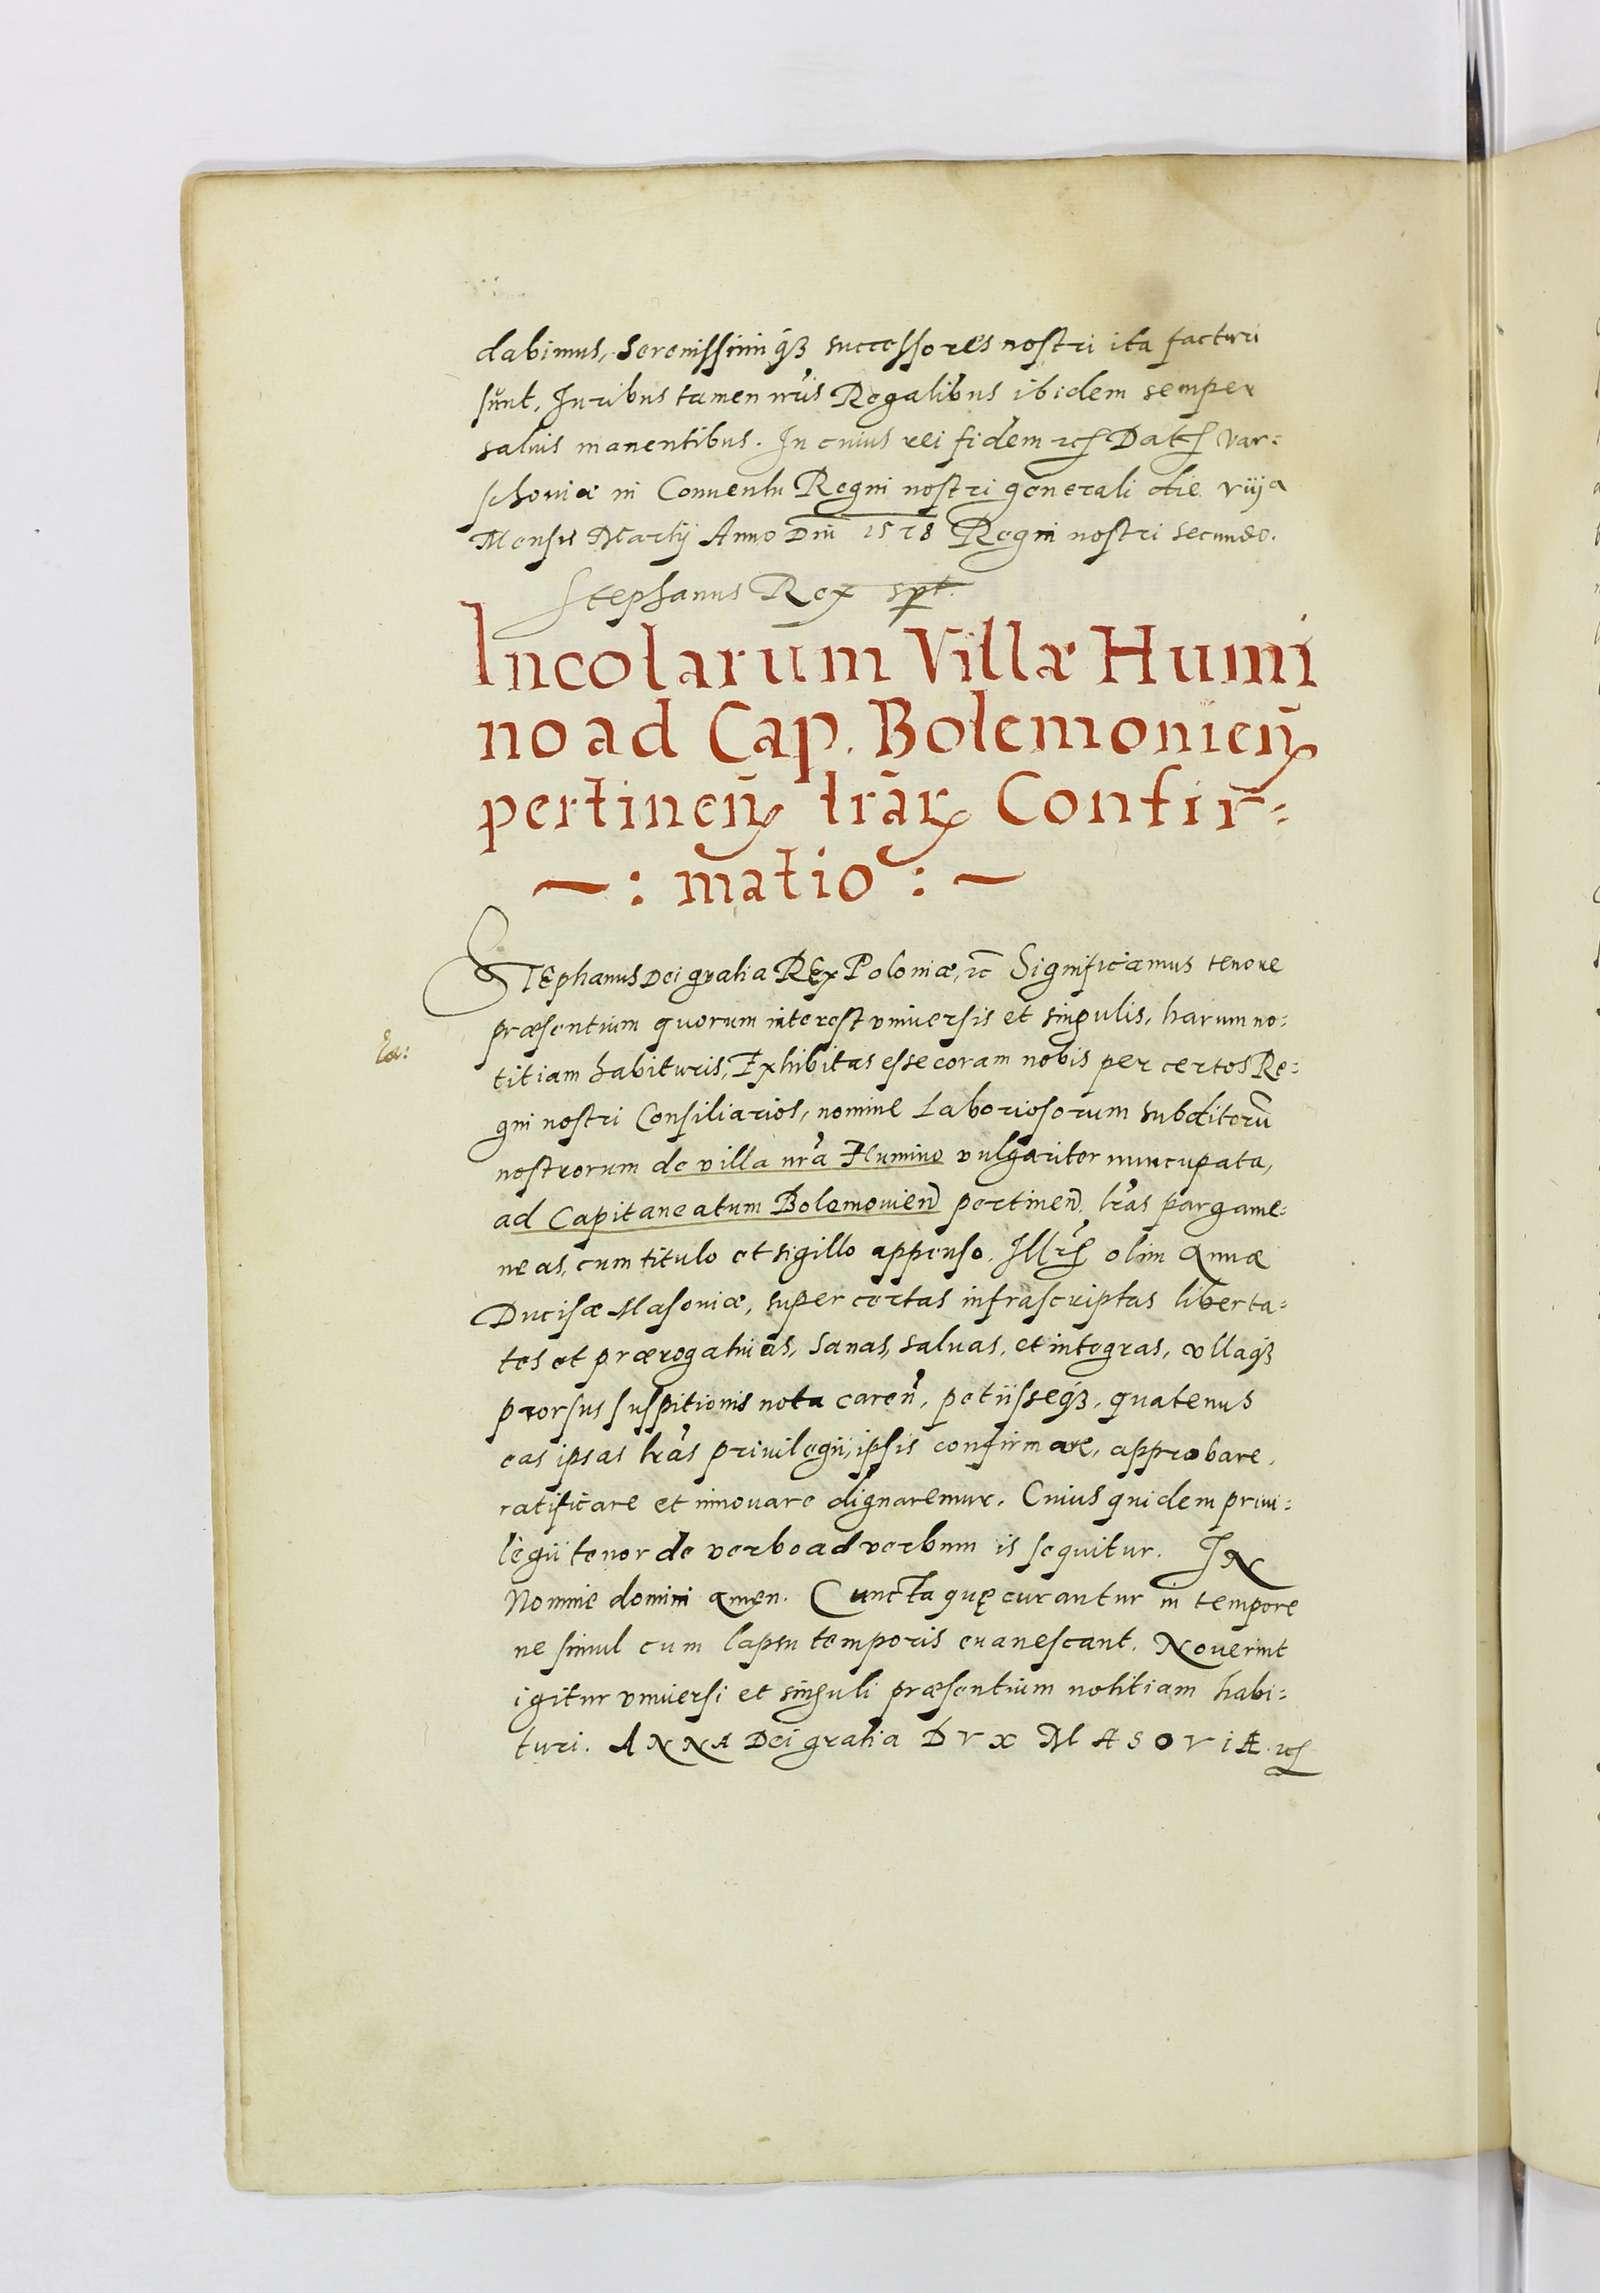 dabimus, Serenissimiq3 successores nostri ita facturi
sunt, Iuribus tamen nr̃is Regalibus ibidem semper
saluis manentibus. In cuius rei fidem etc Dat Var=
schoviæ in Conuentu Regni nostri generali die viija
Mensis Martij Anno Dni 1578 Regni nostri secundo.
Stephanus Rex spt.
Incolarum Villæ Humi
no ad Cap. Bolemonien̄
pertinen̄ lrar̃ Confir=
~ : matio : ~
Stephanus Dei gratia Rex Poloniæ, etc Significamus tenore
præsentium quorum interest vniuersis et singulis, harum no=
titiam habituris, Exhibitas esse coram nobis per certos Re=
gni nostri Consiliarios, nomine Laboriosorum subditorũ
nostrorum de villa nr̃a Humino vulgariter nuncupata,
ad Capitaneatum Bolemouien̄ pertinen̄. lr̃as pargame=
neas, cum titulo et sigillo appenso. Illris olim Annæ
Ducisæ Masoniæ, super certas infrascriptas liberta=
tes et prærogatiuas, sanas, saluas, et integras, vllaq3
prorsus suspitionis nota caren̄, petijsseq3, quatenus
eas ipsas lr̃as priuilegij, ipsis confirmare, approbare,
ratificare et innouare dignaremur. Cuius quidem priui=
legij tenor de verbo ad verbum is sequitur. IN
Nomine domini amen. Cuncta quę curantur in tempore
ne simul cum lapsu temporis euanescant. Nouerint
igitur vniuersi et singuli præsentium notitiam habi=
turi. ANNA Dei gratia DVX MASOVIÆ. etc